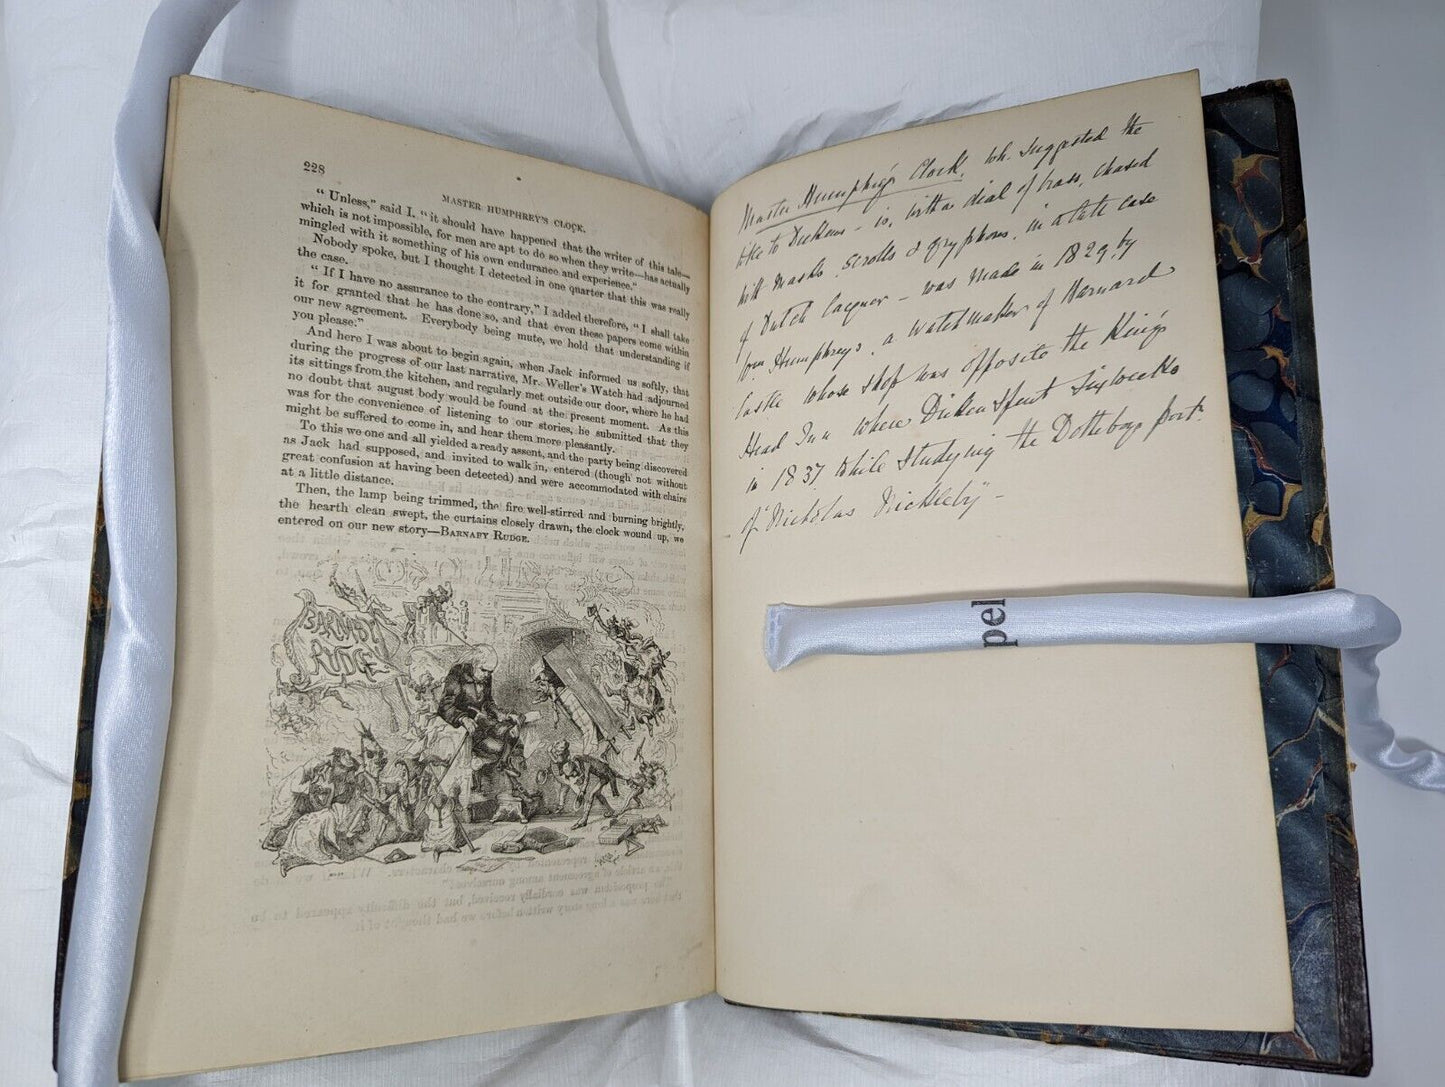 228
MASTER HUMPHREY'S CLOCK.
"Unless," said I, "it should have happened that the writer of this tale—
which is not impossible, for men are apt to do so when they write—has actually
mingled with it something of his own endurance and experience."
Nobody spoke, but I thought I detected in one quarter that this was really
the case.
"If I have no assurance to the contrary," I added therefore, "I shall take
it for granted that he has done so, and that even these papers come within
our new agreement. Everybody being mute, we hold that understanding if
you please."
And here I was about to begin again, when Jack informed us softly, that
during the progress of our last narrative, Mr. Weller's Watch had adjourned
its sittings from the kitchen, and regularly met outside our door, where he had
no doubt that august body would be found at the present moment. As this
was for the convenience of listening to our stories, he submitted that they
might be suffered to come in, and hear them more pleasantly.
To this we one and all yielded a ready assent, and the party being discovered
as Jack had supposed, and invited to walk in, entered (though not without
great confusion at having been detected) and were accommodated with chairs
at a little distance.
Then, the lamp being trimmed, the fire well-stirred and burning brightly,
the hearth clean swept, the curtains closely drawn, the clock wound up, we
entered on our new story—BARNABY RUDGE.
BARNABY
RUDGE
Master Humphrey's Clock, wh. suggested the
title to Dickens – is, with a dial of brass, chased
with masks, scrolls & gryphons, in a late case
of Dutch Lacquer – was made in 1829, by
Wm. Humphreys, a watchmaker of Barnard
Castle whose shop was opposite the King's
Head Inn where Dickens spent six weeks
in 1837 while studying the Dotheboys part
– of "Nicholas Nickleby" –
pel